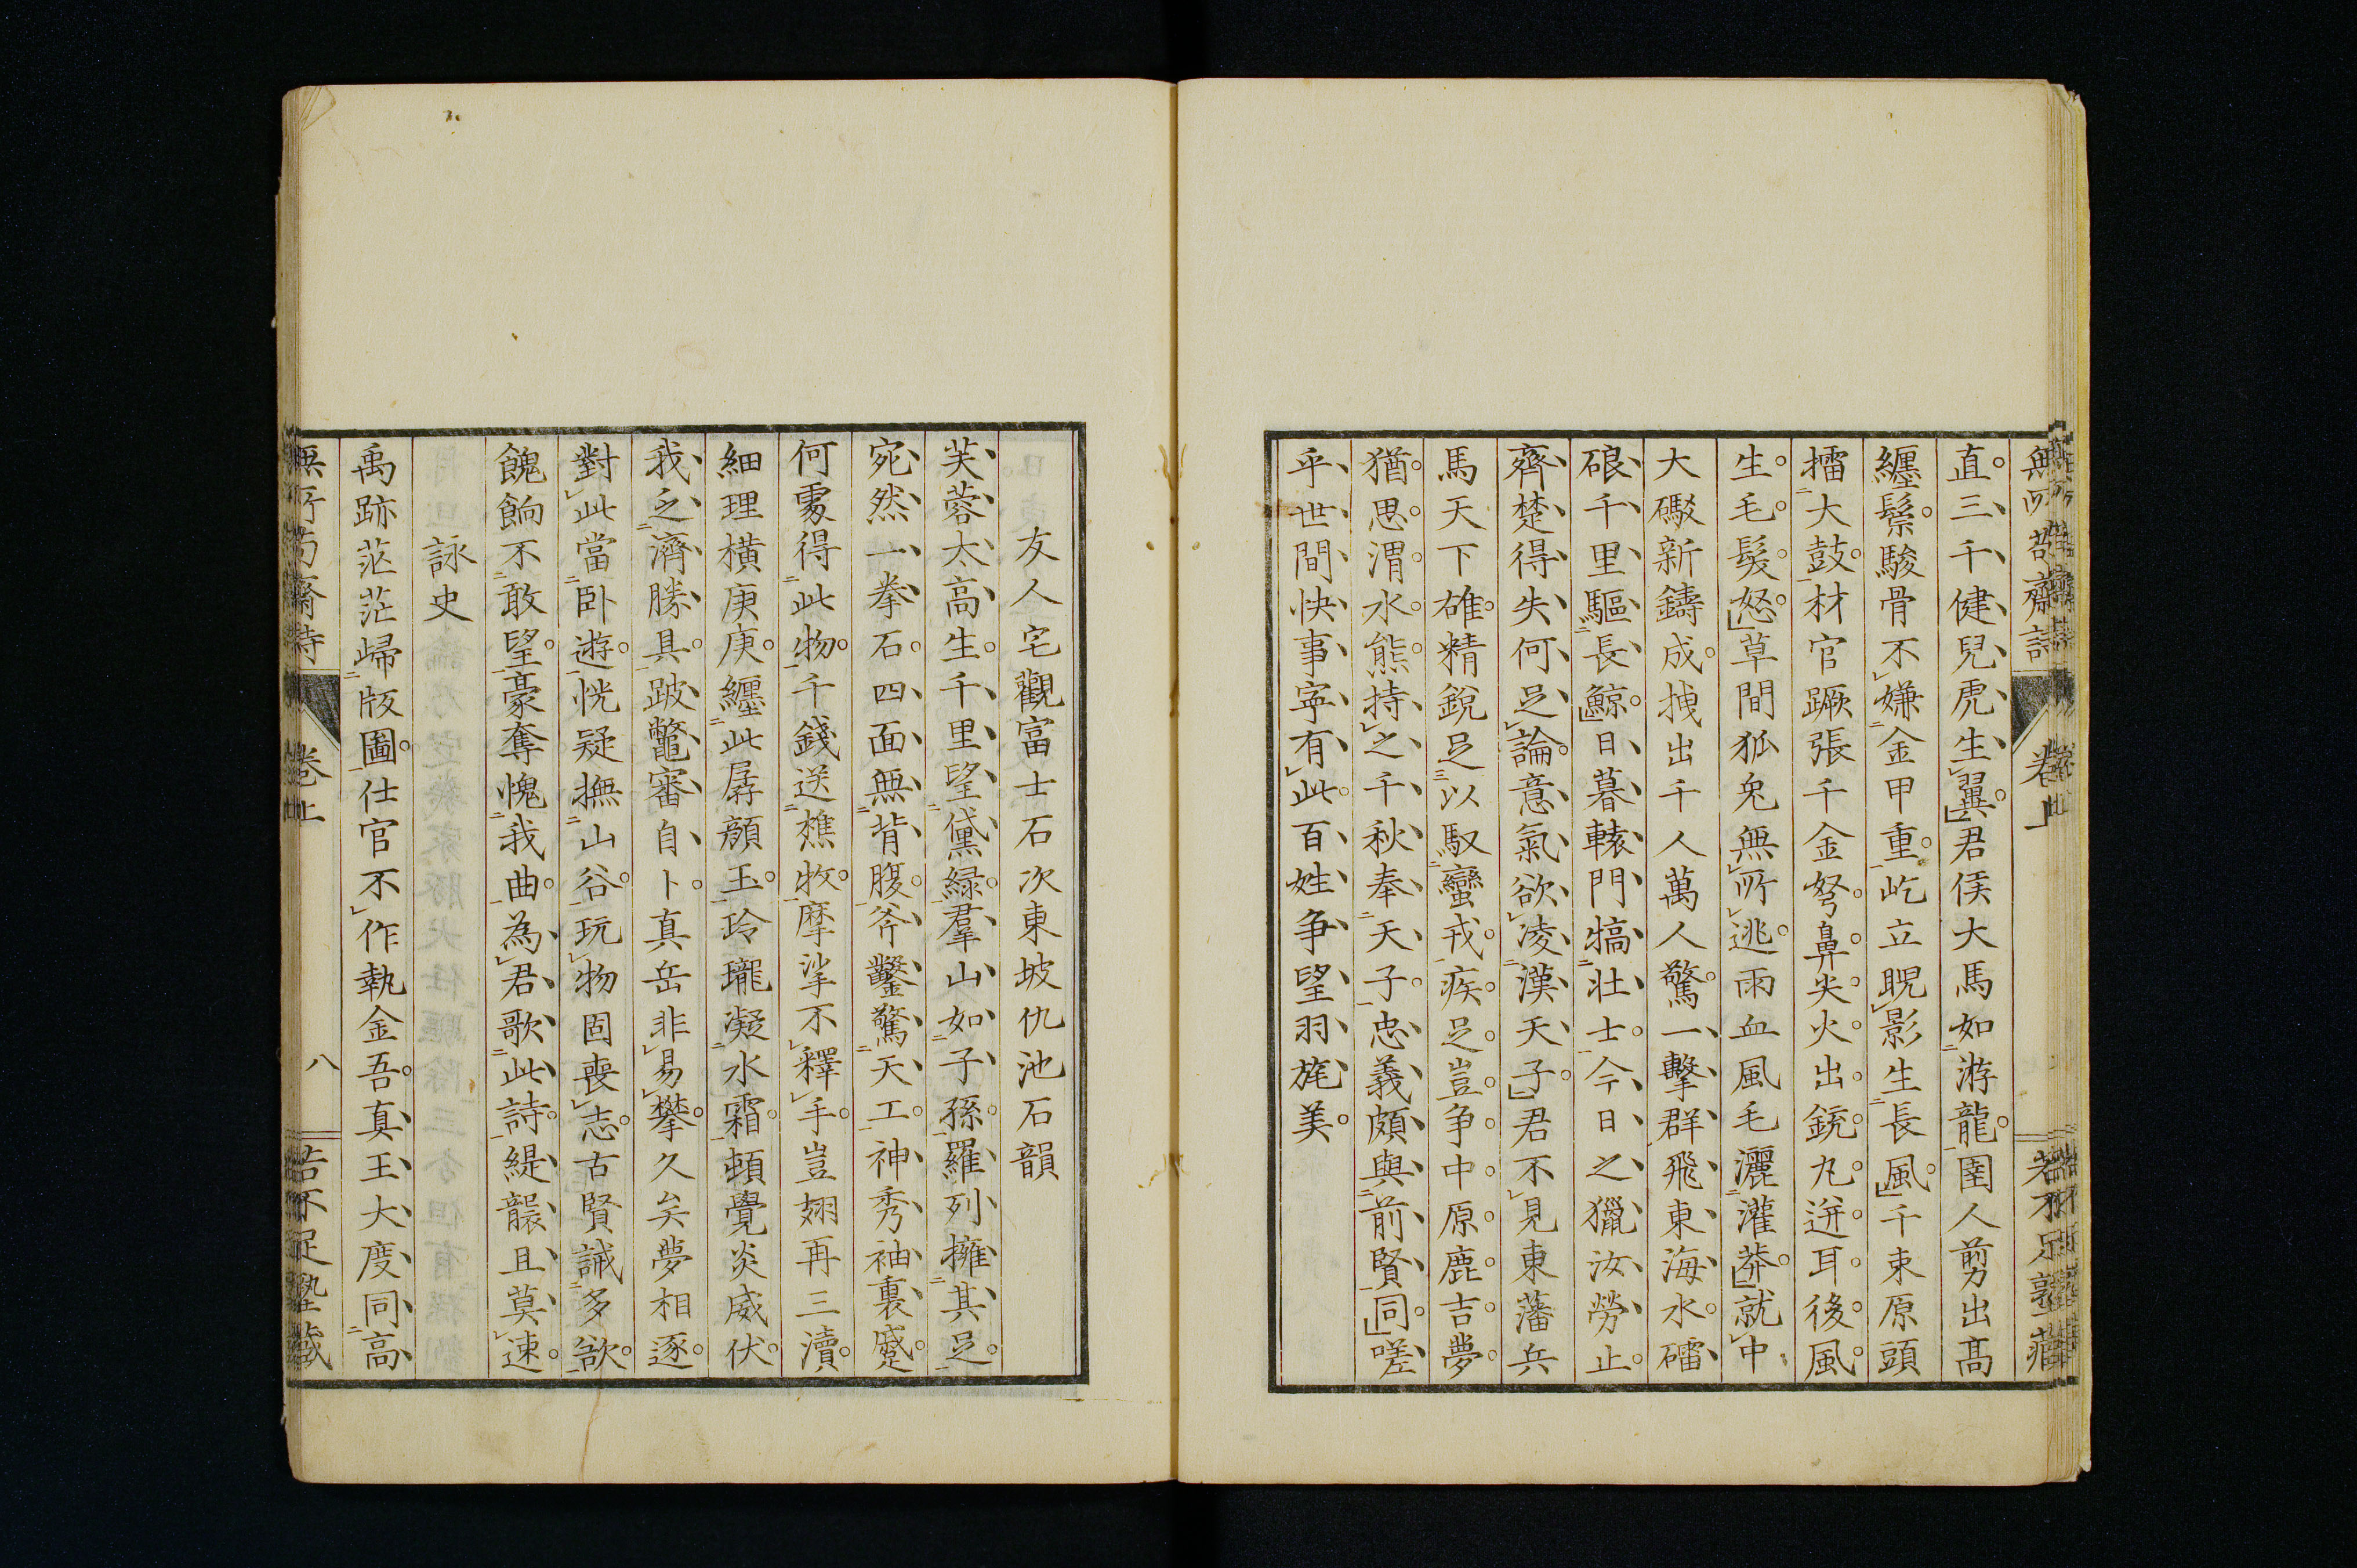 直三千健兒虎生翼君侯大馬如游龍圉人剪出高
纏鬃駿骨不嫌金甲重屹立睨影生長風千束原頭
擂大鼓材官蹶張千金弩鼻尖火出銃丸迸耳後風
生毛髮怒草間狐兔無所逃雨血風毛灑灌莽就中
大礮新鑄成拽出千人萬人驚一擊群飛東海水礌
硠千里驅長鯨日暮轅門犒壯士今日之獵汝勞止
齊楚得失何足論意氣欲凌漢天子君不見東藩兵
馬天下雄精銳足以馭蠻戎疾足豈争中原鹿吉夢
猶思渭水熊持之千秋奉天子忠義頗與前賢同嗟
乎世間快事寧有此百姓争望羽旄美
友人宅觀富士石次東坡仇池石韻
芙蓉太高生千里望黛綠羣山如子孫羅列擁其足
宛然一拳石四面無背腹斧鑿驚天工神秀袖裏蹙
何處得此物千錢送樵牧摩挲不釋手豈翅再三瀆
細理橫庚庚纏此孱顏玉玲瓏凝水霜頓覺炎威伏
我乏濟勝具跛鼈審自卜真岳非易攀久矣夢相逐
對此當臥遊恍疑撫山谷玩物固喪志古賢誡多欲
餽餉不敢望豪奪愧我曲為君歌此詩緹襲且莫速
詠史
禹跡茫茫歸版圖仕官不作執金吾真王大度同高
無所苟齋詩 卷上 八 若不足塾藏